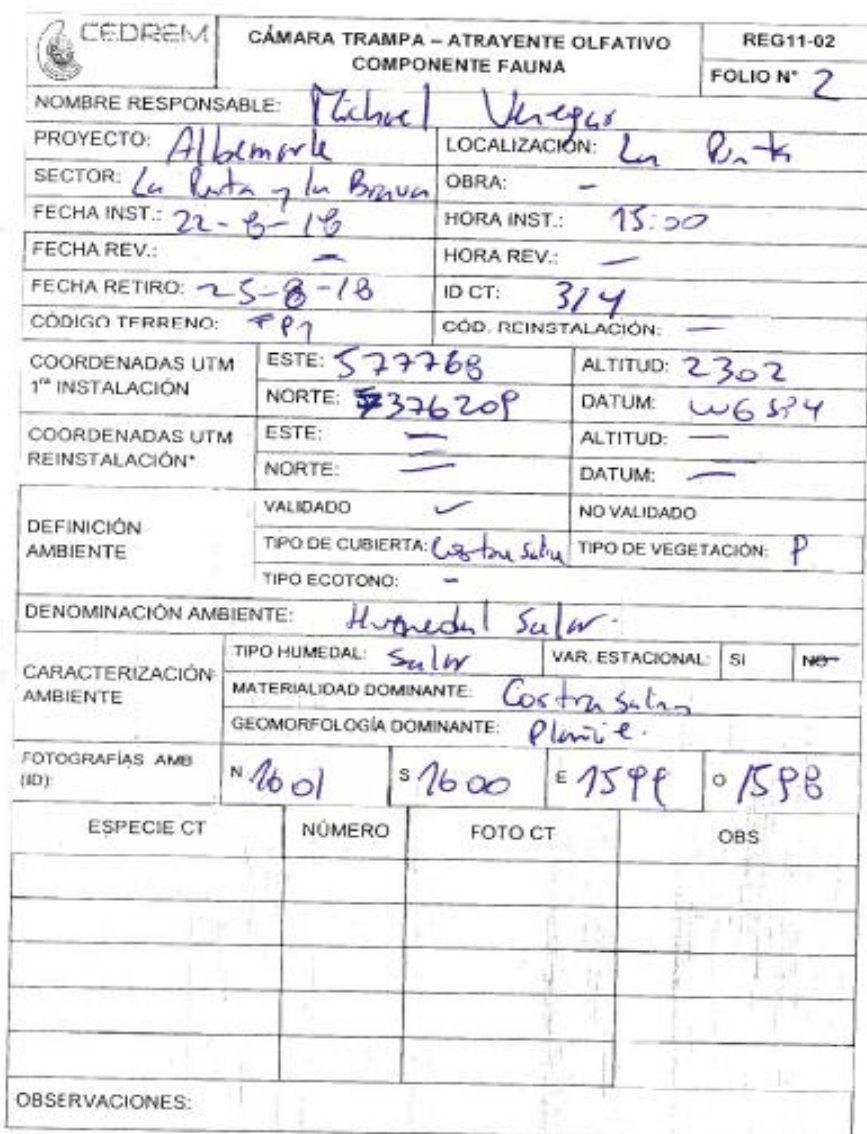 CEDREM
CÁMARA TRAMPA – ATRAYENTE OLFATIVO
COMPONENTE FAUNA
REG11-02
FOLIO N° 2
NOMBRE RESPONSABLE: Michael Venegas
PROYECTO: Albemarle
LOCALIZACIÓN: La Punta
SECTOR: La Punta y la Brava
OBRA: -
FECHA INST.: 22-8-18
HORA INST.: 15:00
FECHA REV.: —
HORA REV.: —
FECHA RETIRO: 25-8-18
ID CT: 314
CÓDIGO TERRENO:
CÓD. REINSTALACIÓN: —
COORDENADAS UTM
1ra INSTALACIÓN
ESTE: 577768
ALTITUD: 2302
NORTE: 7376209
DATUM: WGS84
COORDENADAS UTM
REINSTALACIÓN*
ESTE: —
ALTITUD: —
NORTE: —
DATUM: —
DEFINICIÓN
AMBIENTE
VALIDADO ✓
NO VALIDADO
TIPO DE CUBIERTA: Costra Salina
TIPO DE VEGETACIÓN: P
TIPO ECOTONO: -
DENOMINACIÓN AMBIENTE: Humedal Salar.
CARACTERIZACIÓN
AMBIENTE
TIPO HUMEDAL: Salar
VAR. ESTACIONAL: SI NO
MATERIALIDAD DOMINANTE: Costra Salina
GEOMORFOLOGÍA DOMINANTE: Planicie.
FOTOGRAFÍAS AMB
(ID):
N 1601
S 1600
E 1599
O 1598
ESPECIE CT
NÚMERO
FOTO CT
OBS
OBSERVACIONES: